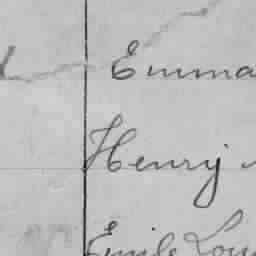 Emma
Henry
Emile Lou